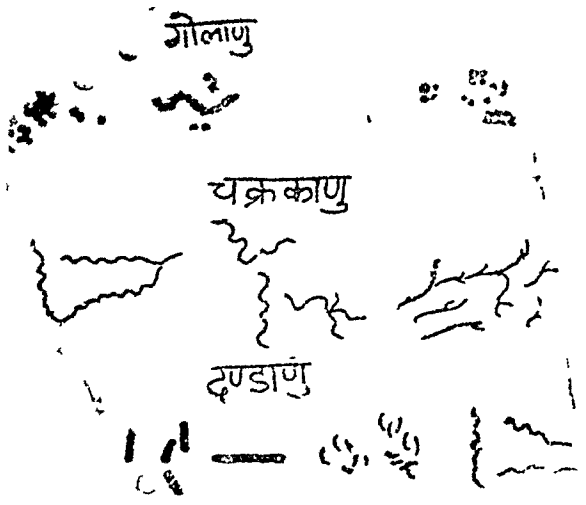 गोलाणु
चक्रकाणु
दण्डाणु